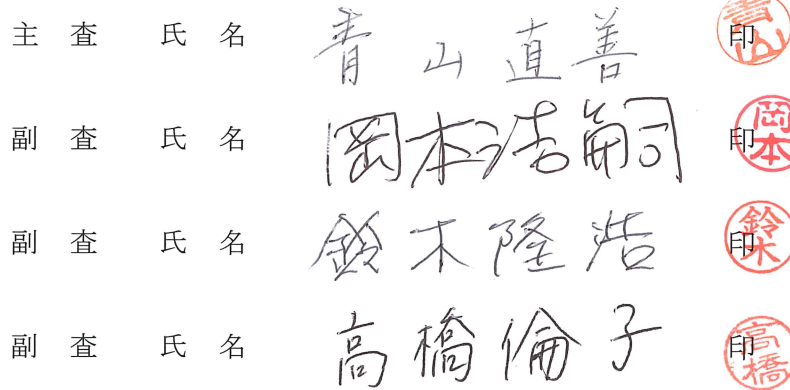 主 査 氏 名 青山直善 印 青山
副 査 氏 名 岡本浩嗣 印 岡本
副 査 氏 名 鈴木隆浩 印 鈴木
副 査 氏 名 高橋倫子 印 高橋